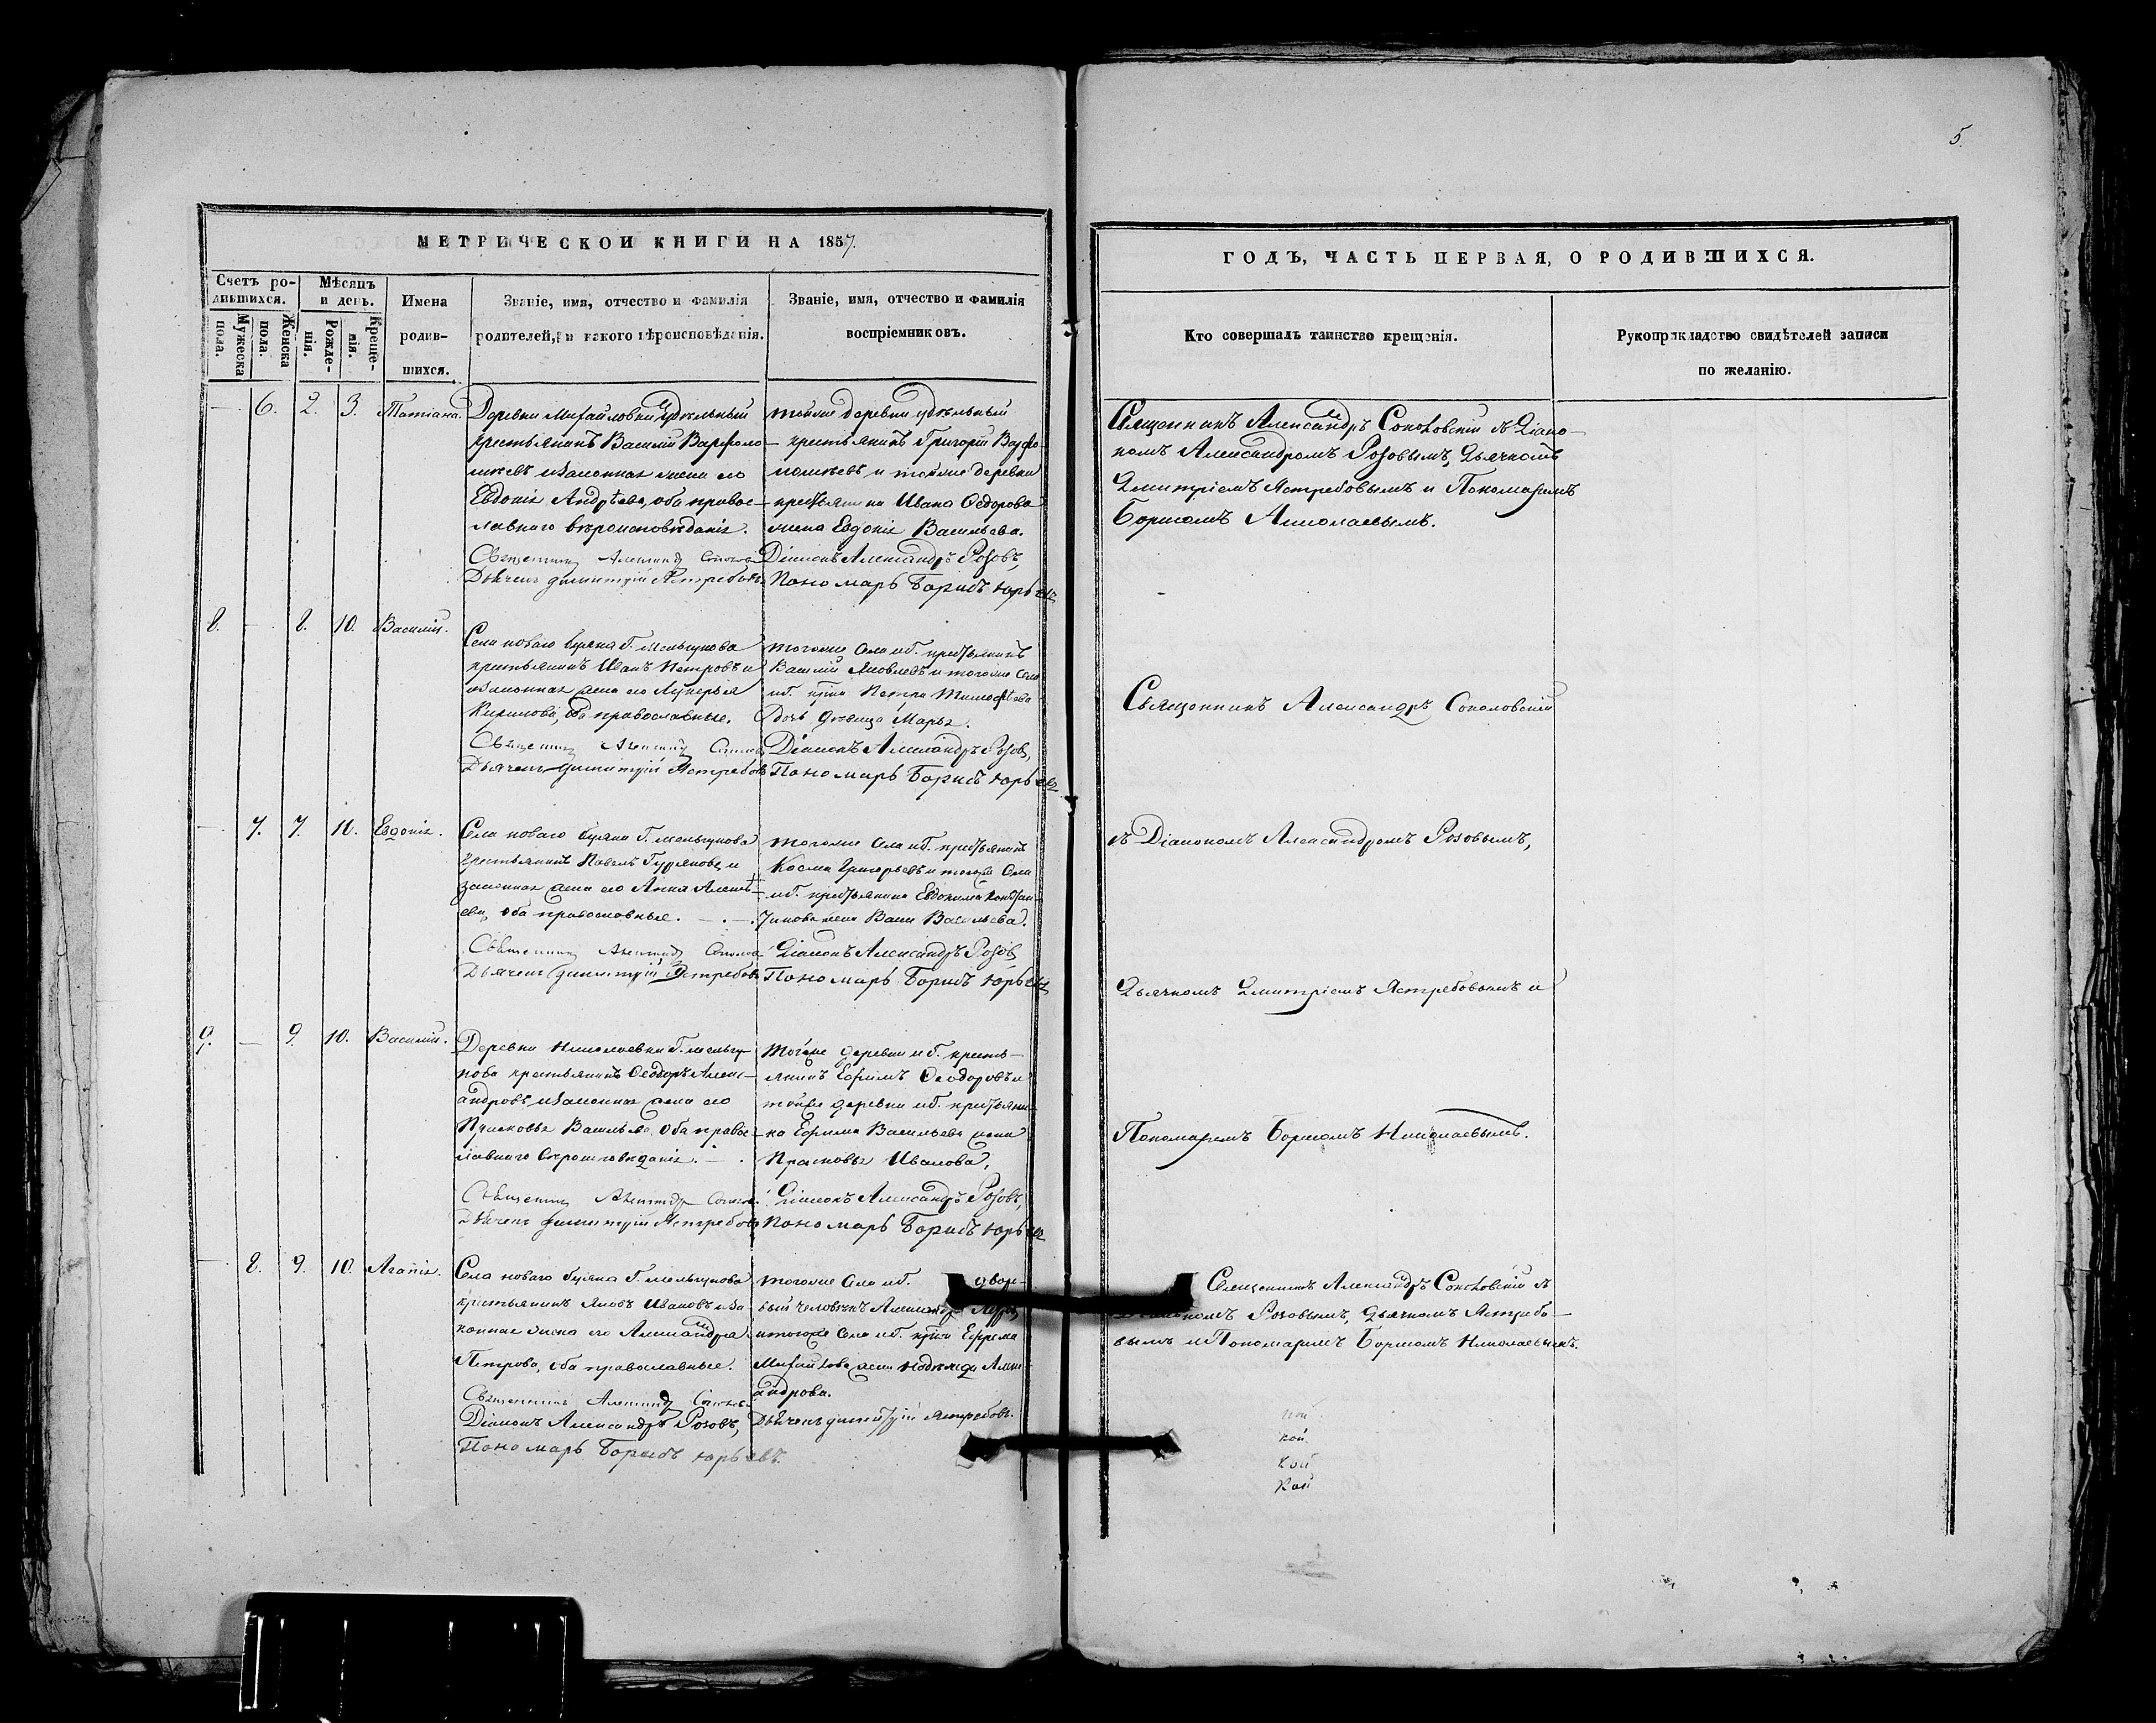 5.
МЕТРИЧЕСКОЙ КНИГИ НА 1857.
Счетъ ро-
дившихся.
Мѣсяцъ
и день.
Мужеска
пола.
Женска
пола.
Рожде-
нія.
Креще-
нія.
Имена
родив-
шихся.
Званіе, имя, отчество и фамилія
родителей, и какого вѣроисповѣданія.
Званіе, имя, отчество и фамилія
воспріемниковъ.
— 6. 2. 3. Татіана.
Деревни Михайловки удѣльный
крестьянинъ Василій Варфоло-
мѣевъ и законная жена его
Евдокія Андрѣева, оба правос-
лавнаго вѣроисповѣданія.
Священникъ Александръ
Дьячекъ Димитрій Ястребовъ
тойже деревни удѣльный
крестьянинъ Григорій Варфо-
ломѣевъ и тойже деревни
крестьянина Ивана Ѳедорова
жена Евдокія Васильева.
Діаконъ Александръ Розовъ,
Пономарь Борисъ Юрьевъ
8. — 8. 10. Василій.
Села новаго буяна Г. Мельгунова
крестьянинъ Иванъ Петровъ и
законная жена его Лукерья
Кирилова, оба православные.
Священникъ Александръ
Дьячекъ Димитрій Ястребовъ
тогоже села иб. крестьянинъ
Василій Яковлевъ и тогоже села
иб. Петра Тимофѣева
дочь дѣвица Марья.
Діаконъ Александръ Розовъ,
Пономарь Борисъ Юрьевъ
— 7. 7. 10. Евдокія.
Села новаго буяна Г. мельгунова
крестьянинъ Павелъ Гурьяновъ и
законная жена его Анна Алексѣ-
ева, оба православные.
Священникъ Александръ
Дьячекъ Димитрій Ястребовъ
тогоже села иб. крестьянинъ
Косма Григорьевъ и тогоже села
иб. крестьянина Евдокима Констан-
тинова жена Васильева.
Діаконъ Александръ Розовъ
Пономарь Борисъ Юрьевъ
9. — 9. 10. Василій.
Деревни Николаевки Г. мельгу-
нова крестьянинъ Ѳеодоръ Алекс-
андровъ и законная жена его
Прасковья Васильева, оба правос-
лавнаго вѣроисповѣданія.
Священникъ Александръ
Дьячекъ Димитрій Ястребовъ
тойже деревни иб. кресть-
янинъ Ефимъ Ѳеодоровъ и
тойже деревни иб. крестьяни-
на Ефима Васильева жена
Прасковья Иванова.
Діаконъ Александръ Розовъ,
Пономарь Борисъ Юрьевъ
— 8. 9. 10. Агапія.
Села новаго буяна Г. мельгунова
крестьянинъ Яковъ Ивановъ и за-
конная жена его Александра
Петрова, оба православные.
Священникъ Александръ
Діаконъ Александръ Розовъ,
Пономарь Борисъ Юрьевъ.
тогоже села иб. дворо-
вый человѣкъ Александръ
и тогоже села иб. Ефрема
Михайлова жена Надежда Алек-
андрова.
Дьячекъ Димитрій Ястребовъ.
ГОДЪ, ЧАСТЬ ПЕРВАЯ, О РОДИВШИХСЯ.
Кто совершалъ таинство крещенія.
Рукоприкладство свидѣтелей записи
по желанію.
Священникъ Александръ Соколовскій съ Діако-
номъ Александромъ Розовымъ, Дьячкомъ
Дмитріемъ Ястребовымъ и Пономаремъ
Борисомъ Николаевымъ.
Священникъ Александръ Соколовскій
съ Діакономъ Александромъ Розовымъ,
Дьячкомъ Дмитріемъ Ястребовымъ и
Пономаремъ Борисомъ Николаевымъ.
Священникъ Александръ Соколовскій съ
Діакономъ Розовымъ, Дьячкомъ Ястребо-
вымъ и Пономаремъ Борисомъ Николаевымъ.
кой
кой
кой